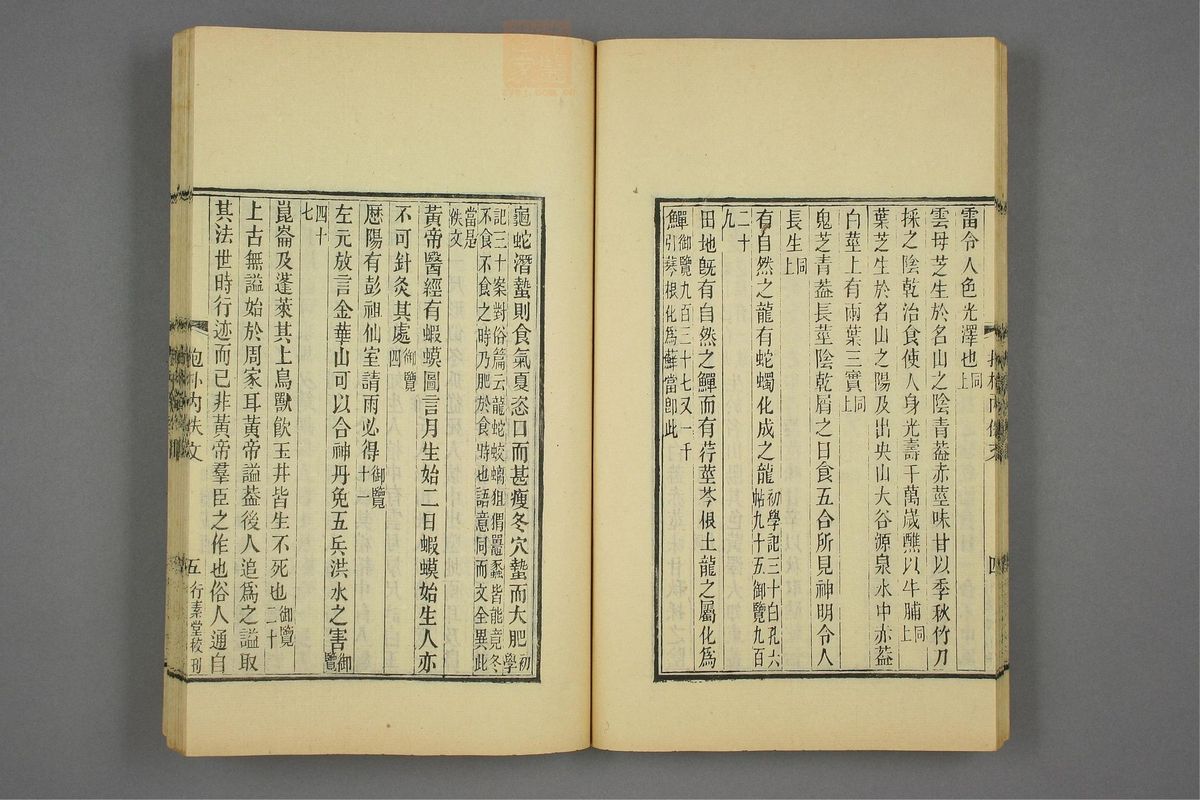 雷令人色光澤也同上
雲母芝生於名山之陰青葢赤莖味甘以季秋竹刀
採之陰乾治食使人身光壽千萬歲醮以牛脯同上
葉芝生於名山之陽及出央山大谷源泉水中赤葢
白莖上有兩葉三實同上
鬼芝青葢長莖陰乾屑之日食五合所見神明令人
長生同上
有自然之龍有蛇蠋化成之龍初學記三十白孔六帖九十五御覽九百
二十九
田地既有自然之鱓而有荇莖芩根土龍之屬化為
鱓御覽九百三十七又一千引莠根化為蘚當卽此
四
龜蛇潛蟄則食氣夏恣口而甚瘦冬穴蟄而大肥初學
記三十案對俗篇云龍蛇蛟螭狙猬鼉蠡皆能竟冬不食不食之時乃肥於食時也語意同而文全異此
當是佚文
黃帝醫經有蝦蟆圖言月生始二日蝦蟆始生人亦
不可針灸其處御覽四
厯陽有彭祖仙室請雨必得御覽十一
左元放言金華山可以合神丹免五兵洪水之害御覽
四十七
崑崙及蓬萊其上鳥獸飮玉井皆生不死也御覽二十
上古無諡始於周家耳黃帝諡葢後人追爲之諡取
其法世時行迹而已非黃帝羣臣之作也俗人通自
抱朴內佚文
五
行素堂校刊